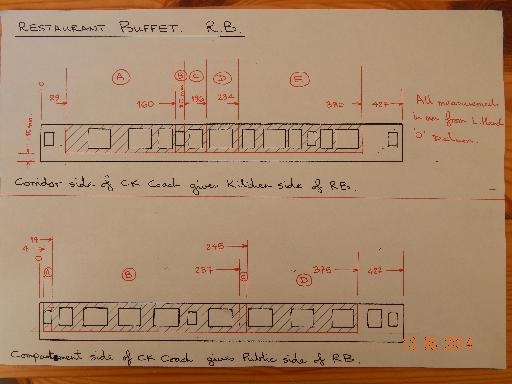 RESTAURANT BUFFET. R.B.
0 A B C D E
29 160 196 234 380 427
All measurements
in mm from L.Hand
'0' Datum.
Corridor side of C.K Coach gives Kitchen side of R.B.
19 245
4
0 A B 237 C D 375 427
Compartment side of C.K Coach gives Public side of R.B.